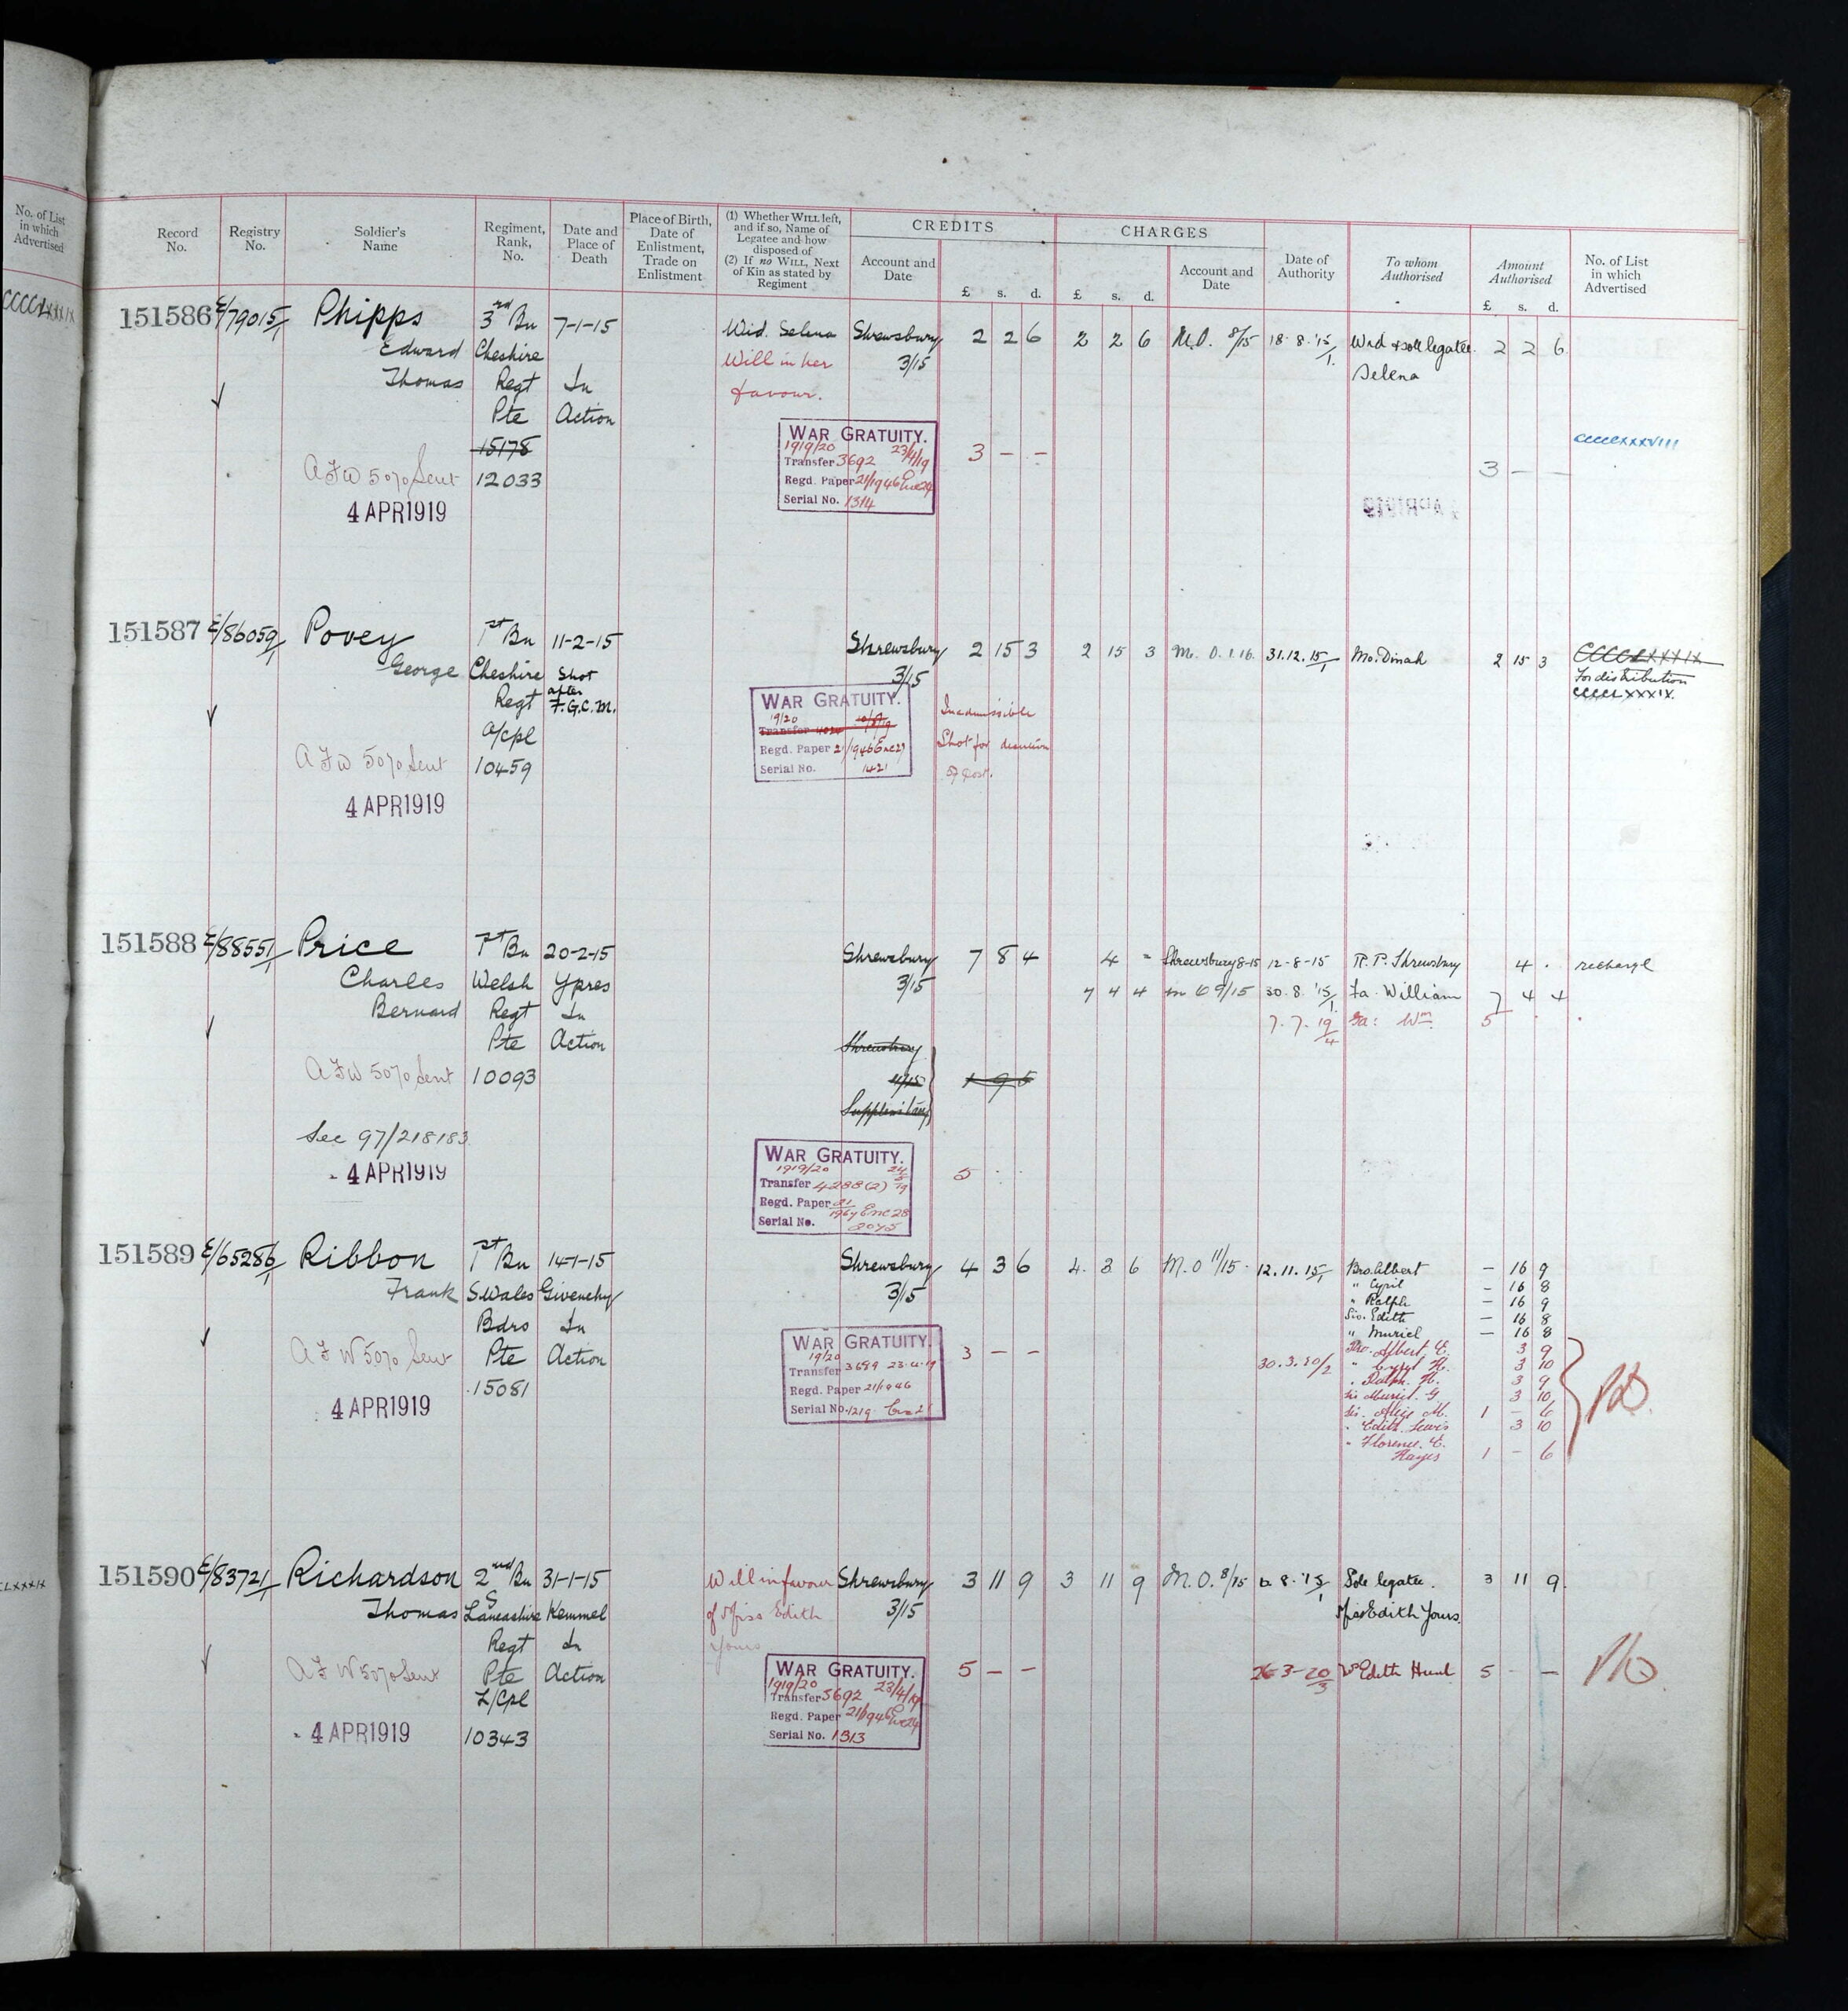 No. of List
in which
Advertised
Record
No.
Registry
No.
Soldier's
Name
Regiment,
Rank,
No.
Date and
Place of
Death
Place of Birth,
Date of
Enlistment,
Trade on
Enlistment
(1) Whether WILL left,
and if so, Name of
Legatee and how
disposed of
(2) If no WILL, Next
of Kin as stated by
Regiment
CREDITS
Account and
Date
£ s. d.
CHARGES
£ s. d.
Account and
Date
Date of
Authority
To whom
Authorised
Amount
Authorised
£ s. d.
No. of List
in which
Advertised
151586 E/79015/1 Phipps 3rd Bn 7-1-15 Wid. Selena Shrewsbury 2 2 6 2 2 6 M.O. 8/15 18.8.15/1 Wid & sole legatee 2 2 6
Edward Cheshire Will in her 3/15 Selena
Thomas Regt In favour.
Pte Action
15178
WAR GRATUITY.
1919/20 23/4/19
Transfer 3692
Regd. Paper 21/1946
Serial No. 1314
3 – –
3 – –
CCCCLXXXVIII
AFW 5070 Sent 12033
4 APR 1919
151587 E/86059/1 Povey 1st Bn 11-2-15 Shrewsbury 2 15 3 2 15 3 M.O. 1.16. 31.12.15/1 Mo. Dinah 2 15 3 CCCCLXXXIX
George Cheshire Shot 3/15 For distribution
Regt after CCCCLXXXIX.
F.G.C.M.
A/Cpl
WAR GRATUITY.
19/20
Transfer
Regd. Paper 21/1946 Enc 27
Serial No. 1421
Inadmissible
Shot for desertion
of post.
AFW 5070 Sent 10459
4 APR 1919
151588 E/88551/1 Price 1st Bn 20-2-15 Shrewsbury 7 8 4 4 - Shrewsbury 8-15 12-8-15 R.P. Shrewsbury 4 . recharge
Charles Welsh Ypres 3/15 7 4 4 M O 9/15 30.8.15/1 Fa. William 7 4 4
Bernard Regt In 7.7.19/4 Fa: Wm 5
Pte Action Shrewsbury
AFW 5070 Sent 10093 4/15 1 9 5
See 97/218183
4 APR 1919
WAR GRATUITY.
1919/20
Transfer 4288(2)
Regd. Paper Enc 28
Serial No.
5
151589 E/65286/1 Ribbon 1st Bn 14-1-15 Shrewsbury 4 3 6 4 3 6 M.O 11/15 12.11.15/1 Bro. Albert – 16 9
Frank S Wales Givenchy 3/15 " Cyril – 16 8
" Ralph – 16 9
Bdrs In Sis. Edith – 16 8
" Muriel – 16 8
AFW 5070 Sent Pte Action
15081
4 APR 1919
WAR GRATUITY.
19/20
Transfer 3689 23.4.19
Regd. Paper 21/1946
Serial No. 1219
3 – –
30.3.20/2
Bro. Albert E. 3 9
" Cyril H. 3 10
" Ralph. H. 3 9
Sis Muriel. G 3 10
Sis. Alice M. 1 – 6
" Edith Lewis 3 10
" Florence. E.
Hayes 1 – 6
151590 E/83721/1 Richardson 2nd Bn 31-1-15 Will in favour Shrewsbury 3 11 9 3 11 9 M.O. 8/15 Sole legatee. 3 11 9
Thomas S Lancashire Kemmel of Miss Edith 3/15 Miss Edith Yours.
Regt In Yours
AFW 5070 Sent Pte Action
L/Cpl
4 APR 1919 10343
WAR GRATUITY.
1919/20 23/4/19
Transfer 3692
Regd. Paper 21/1946
Serial No. 1313
5 – –
26-3-20/3 Edith Hunt 5 – –